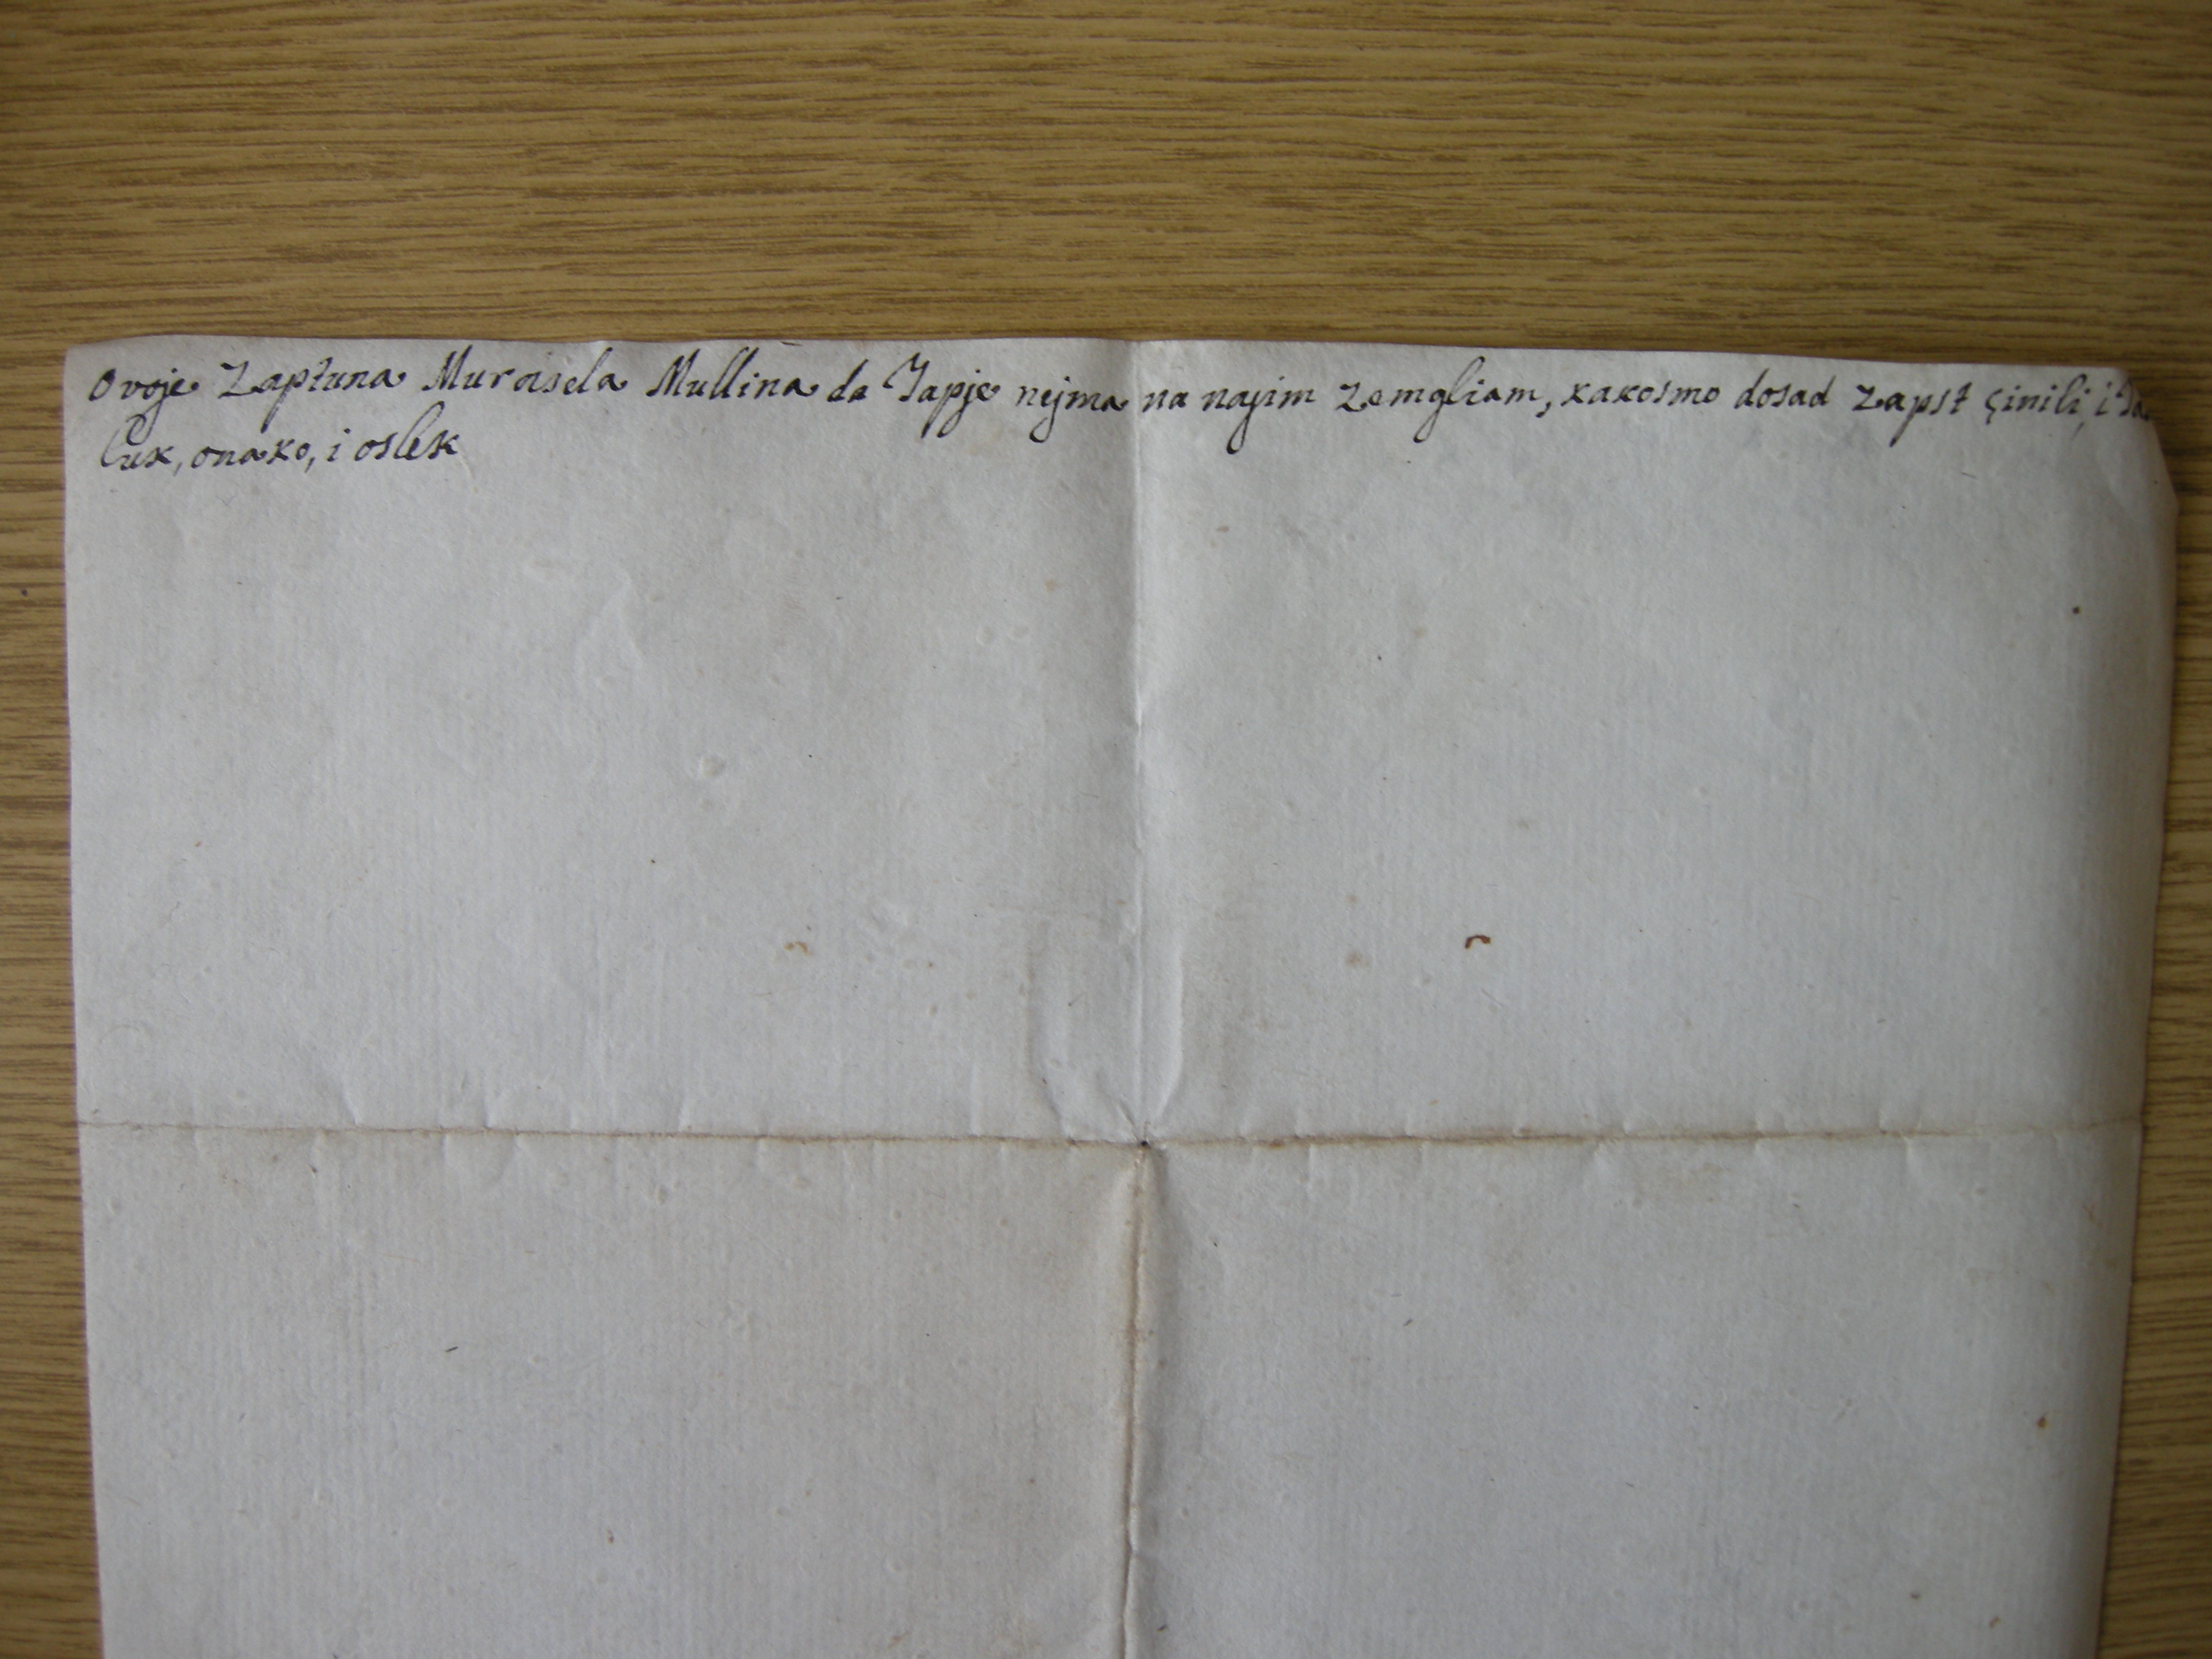 Ovoje Zaptuna Murasela Mullina da Tapje nejma na najim zemgliam, kakosmo dosad zapst çinili, i Ta
luk, onako, i oslek